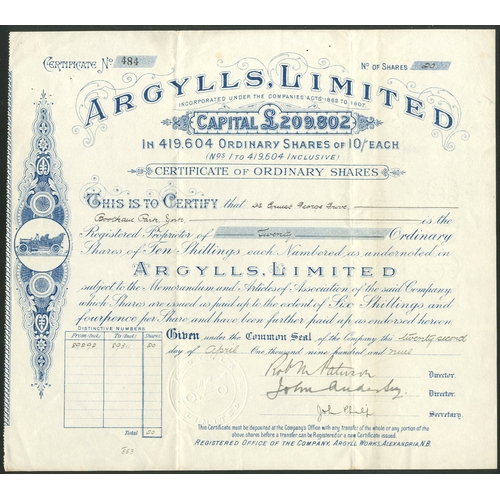 CERTIFICATE No 484
No OF SHARES 20
ARGYLLS, LIMITED
INCORPORATED UNDER THE COMPANIES' ACTS 1862 TO 1907.
CAPITAL £209,802
IN 419,604 ORDINARY SHARES OF 10/ EACH
(Nos 1 TO 419,604 INCLUSIVE)
CERTIFICATE OF ORDINARY SHARES
THIS IS TO CERTIFY that Ernest George
is the
Registered Proprietor of Twenty Ordinary
Shares of Ten Shillings each Numbered as undernoted in
ARGYLLS, LIMITED
subject to the Memorandum and Articles of Association of the said Company
which Shares are issued as paid up to the extent of Six Shillings and
fourpence per Share and have been further paid up as endorsed hereon
DISTINCTIVE NUMBERS
From (incl.) To (incl.) Shares
20
Total 20
Given under the Common Seal of the Company this twenty second
day of April One thousand nine hundred and nine
Director.
John Director.
John Secretary.
This Certificate must be deposited at the Company's Office with any transfer of the whole or any portion of the
above shares before a transfer can be Registered or a new Certificate issued.
REGISTERED OFFICE OF THE COMPANY, ARGYLL WORKS, ALEXANDRIA, N.B.